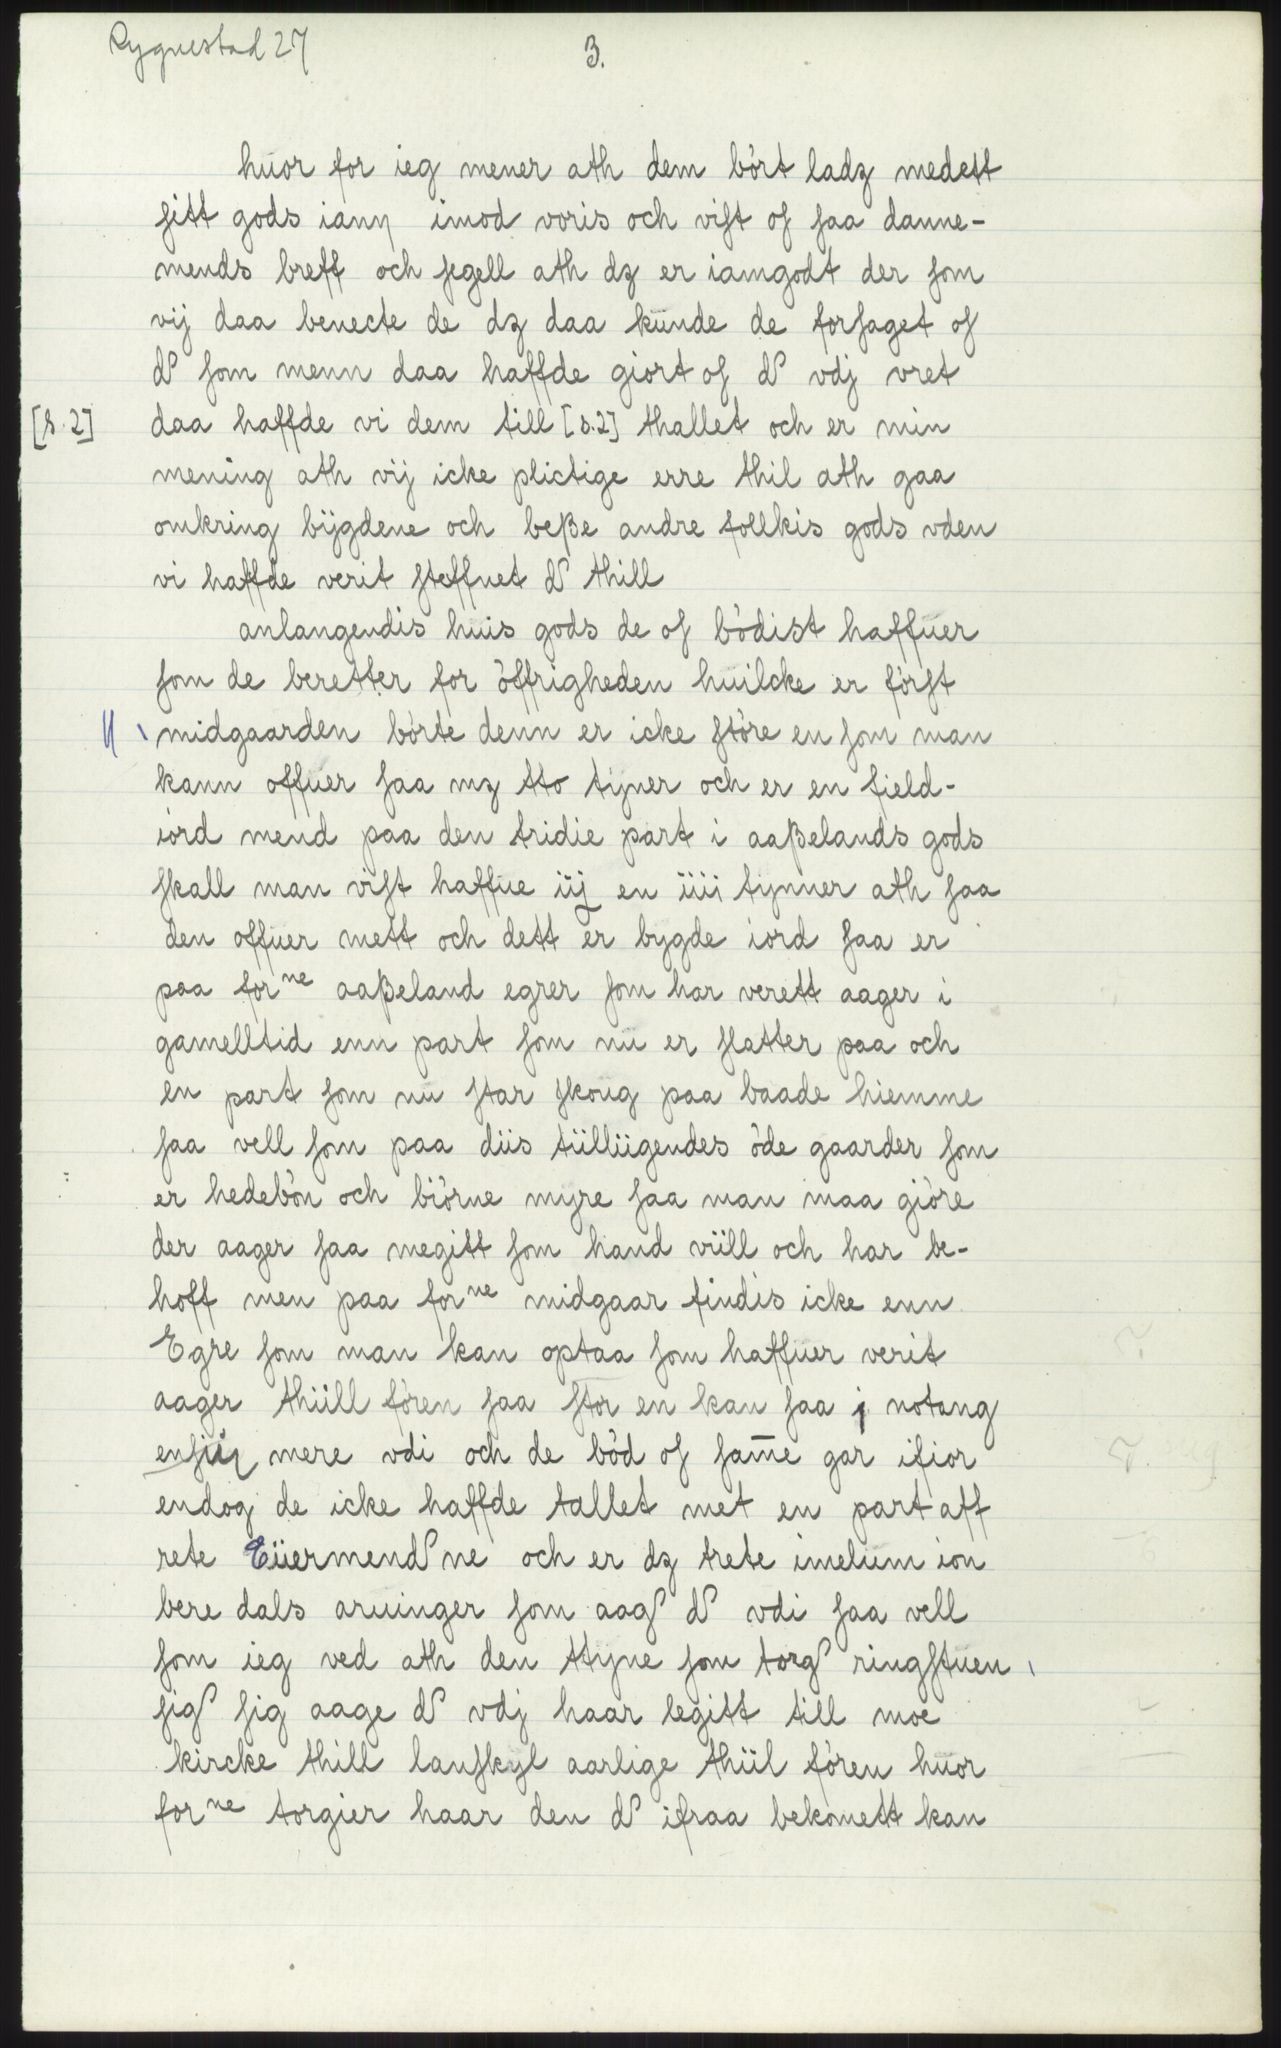 Rygnestad 27
3.
huor for ieg mener ath dem bòrt ladz medett
ſitt gods iann imod voris och viſt oſ ſaa danne-
mends breff och ſegell ath dz er iamgodt der ſom
vij daa benecte de dz daa kunde de forſaget oſ
ſom menn daa haffde giort oſ vdj vret
[s. 2] daa haffde vi dem till [s.2] thallet och er min
mening ath vij icke plictige erre thil ath gaa
omkring bÿgdene och beße andre follkis gods vden
vi haffde verit ſteffnet thill
anlangendis huis gods de oſ bòdist haffuer
ſom de beretter for òffrigheden huilcke er fòrſt
midgaarden bòrte denn er icke ſtòre en ſom man
kann offuer ſaa mz tto tÿner och er en field-
iòrd mend paa den tridie part i aaßelands gods
ſkall man viſt haffue iij en iiii tynner ath ſaa
den offuer mett och dett er bygde iord ſaa er
paa forne aaßeland egrer ſom har verett aager i
gamelltid enn part ſom nu er ſletter paa och
en part ſom nu ſtar ſkoug paa baade hiemme
ſaa vell ſom paa diis tiilliigendes òde gaarder ſom
er hedebòn och biòrne myre ſaa man maa giòre
der aager ſaa megitt ſom hand viill och har be-
hoff men paa forne midgaar findis icke enn
Egre ſom man kan optaa ſom haffuer verit
aager thiill fòren ſaa ſtor en kan ſaa j notang
mere vdi och de bòd oſ ſam̄e gar ifior
endog de icke haffde tallet met en part aff
rete Eüermend ne och er dz trete imelum ion
bere dals aruinger ſom aag vdi ſaa vell
ſom ieg ved ath den ttyne ſom torg ringſtuen
ſig ſig aage vdj haar legitt till moe
kircke thill lanſkyl aarlige thiil fòren huor
forne torgier haar den ifraa bekomett kan